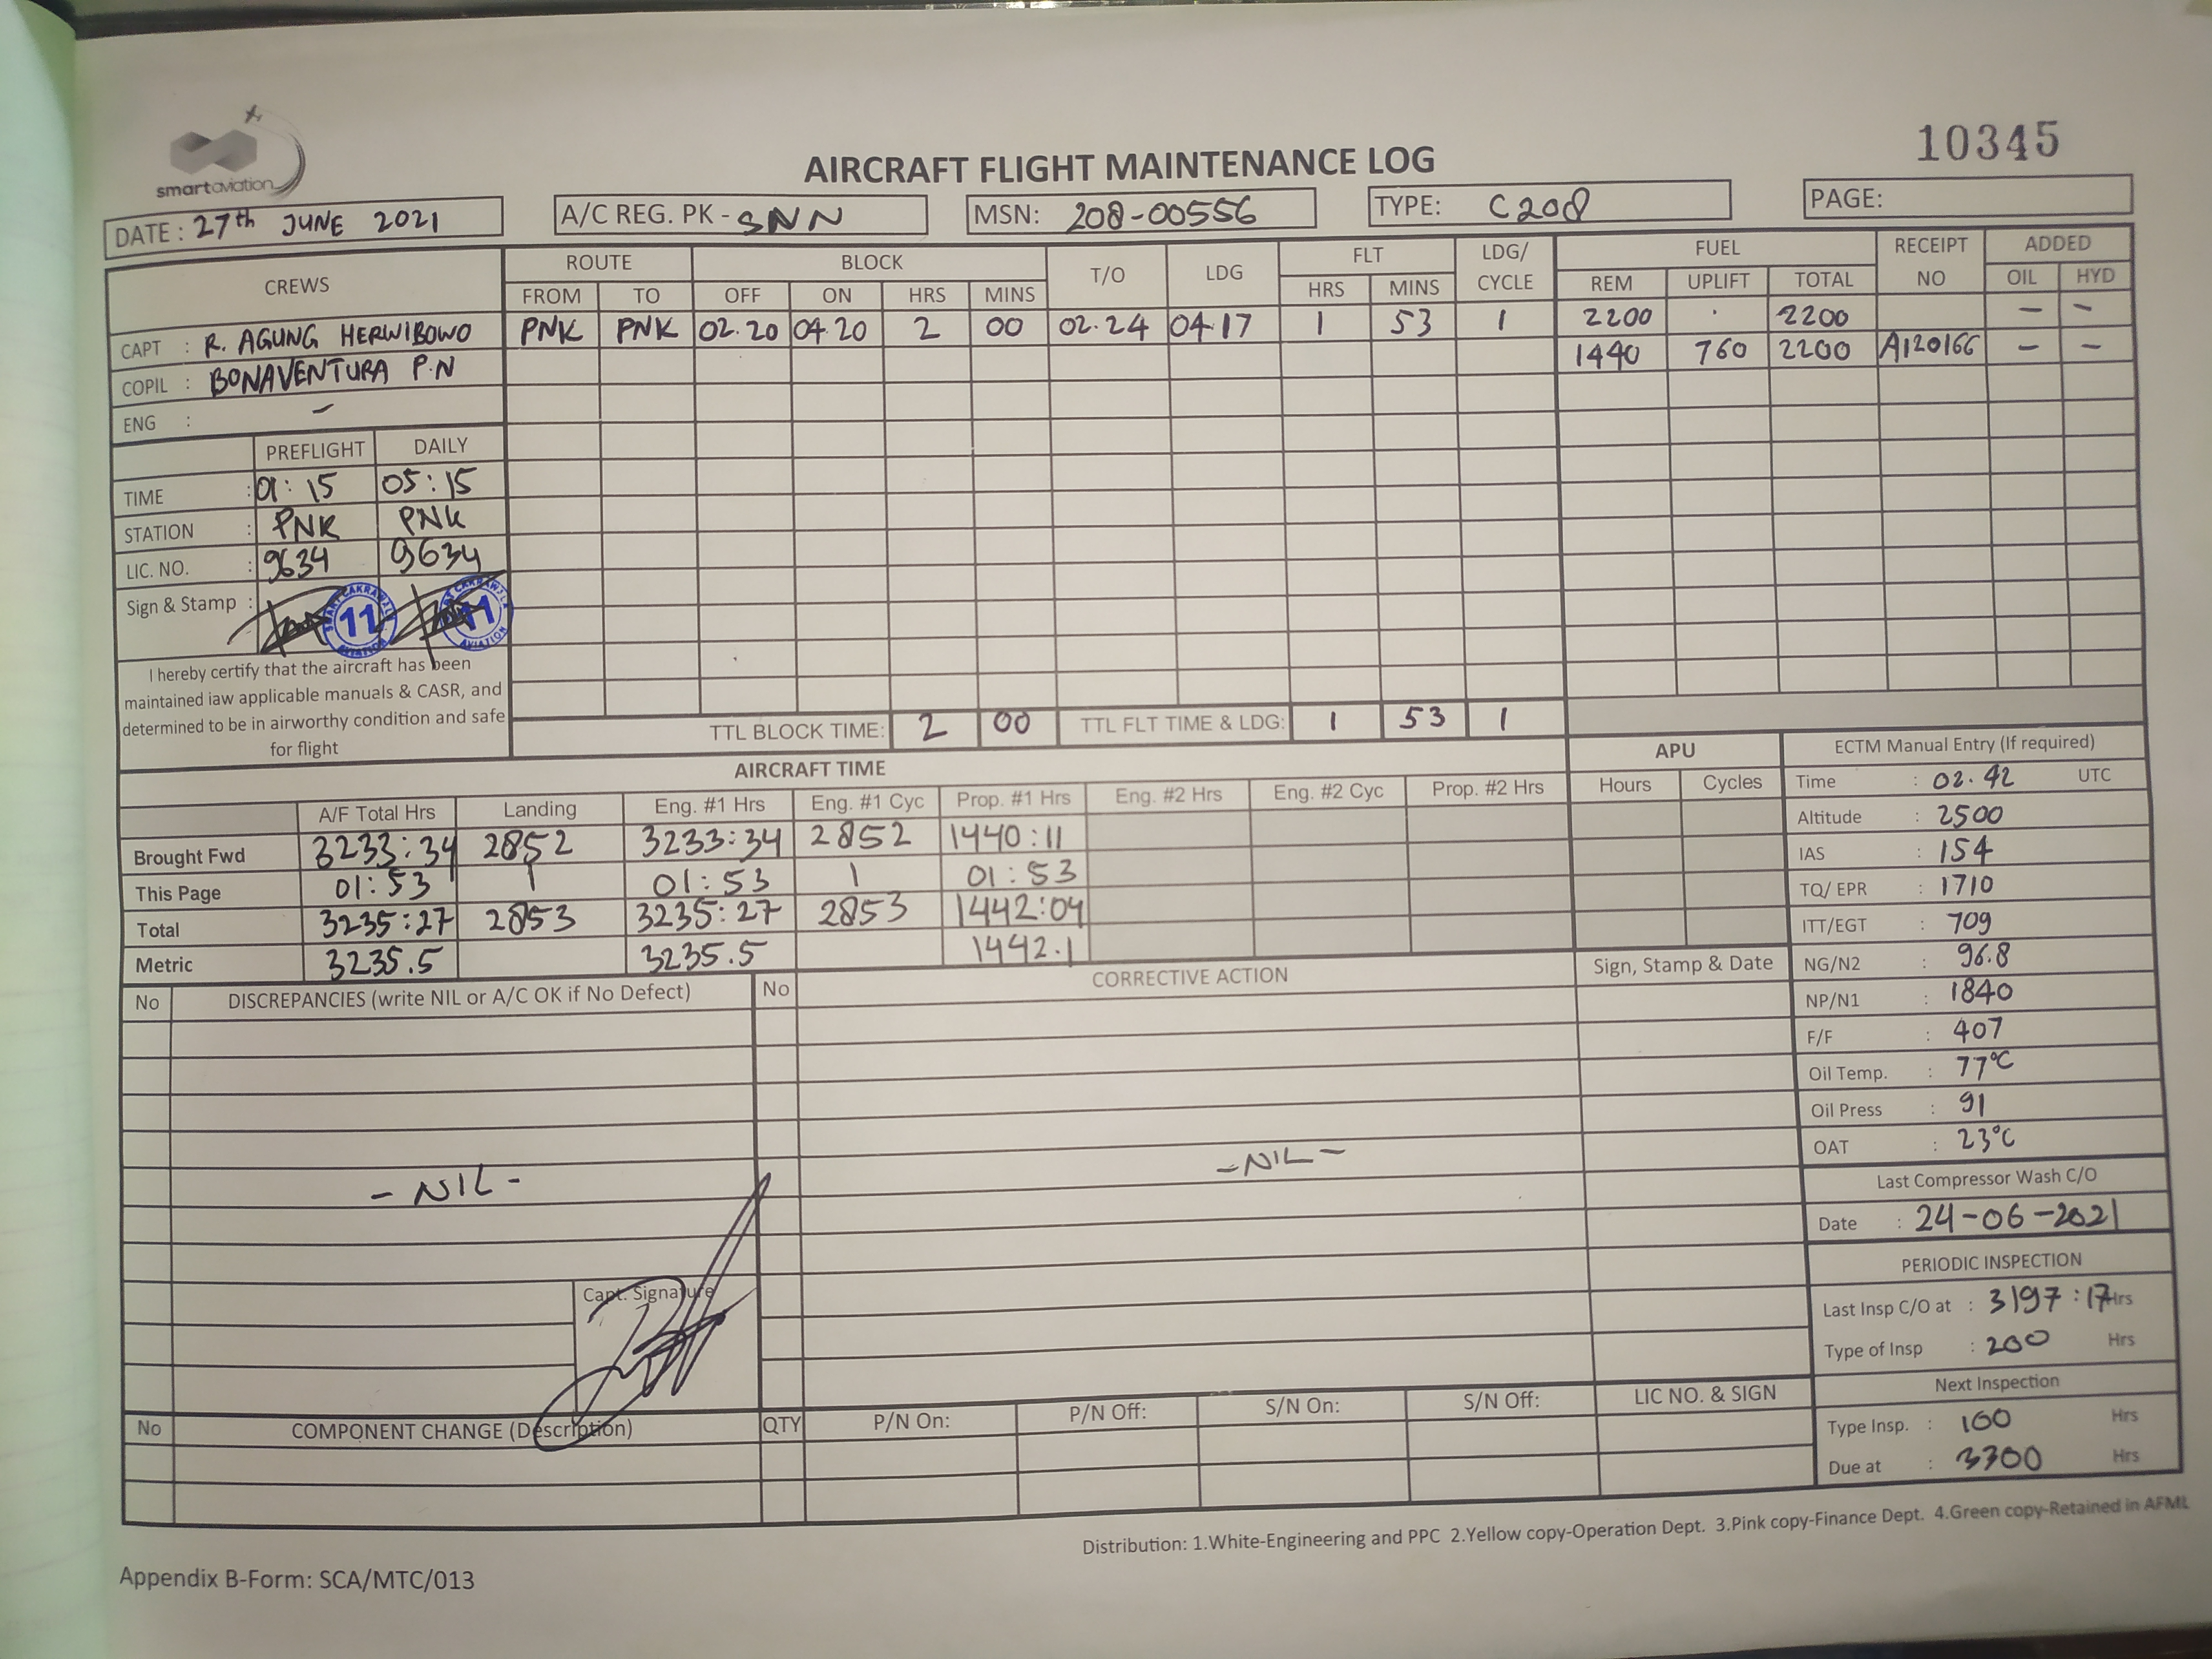 smartaviation
AIRCRAFT FLIGHT MAINTENANCE LOG
10345
DATE : 27th JUNE 2021
A/C REG. PK - SNN
MSN: 208-00556
TYPE: C208
PAGE:
CREWS
ROUTE BLOCK T/O LDG FLT LDG/ CYCLE FUEL RECEIPT NO ADDED
FROM TO OFF ON HRS MINS HRS MINS REM UPLIFT TOTAL OIL HYD
CAPT : R. AGUNG HERWIBOWO
PNK PNK 02.20 04.20 2 00 02.24 04.17 1 53 1 2200 . 2200 — —
COPIL : BONAVENTURA P.N
1440 760 2200 A120166 — —
ENG : –
PREFLIGHT DAILY
TIME : 01:15 05:15
STATION : PNK PNK
LIC. NO. : 9634 9634
Sign & Stamp :
SMART CAKRAWALA AVIATION 11
SMART CAKRAWALA AVIATION 11
I hereby certify that the aircraft has been
maintained iaw applicable manuals & CASR, and
determined to be in airworthy condition and safe
for flight
TTL BLOCK TIME: 2 00 TTL FLT TIME & LDG: 1 53 1
AIRCRAFT TIME
APU
A/F Total Hrs Landing Eng. #1 Hrs Eng. #1 Cyc Prop. #1 Hrs Eng. #2 Hrs Eng. #2 Cyc Prop. #2 Hrs Hours Cycles
Brought Fwd 3233:34 2852 3233:34 2852 1440:11
This Page 01:53 1 01:53 1 01:53
Total 3235:27 2853 3235:27 2853 1442:04
Metric 3235.5 3235.5 1442.1
ECTM Manual Entry (If required)
Time : 02.42 UTC
Altitude : 2500
IAS : 154
TQ/ EPR : 1710
ITT/EGT : 709
NG/N2 : 96.8
NP/N1 : 1840
F/F : 407
Oil Temp. : 77°C
Oil Press : 91
OAT : 23°C
Last Compressor Wash C/O
Date : 24-06-2021
PERIODIC INSPECTION
Last Insp C/O at : 3197:17 Hrs
Type of Insp : 200 Hrs
Next Inspection
Type Insp. : 100 Hrs
Due at : 3300 Hrs
No DISCREPANCIES (write NIL or A/C OK if No Defect) No CORRECTIVE ACTION Sign, Stamp & Date
- NIL -
- NIL -
Capt. Signature
No COMPONENT CHANGE (Description) QTY P/N On: P/N Off: S/N On: S/N Off: LIC NO. & SIGN
Distribution: 1.White-Engineering and PPC 2.Yellow copy-Operation Dept. 3.Pink copy-Finance Dept. 4.Green copy-Retained in AFML
Appendix B-Form: SCA/MTC/013